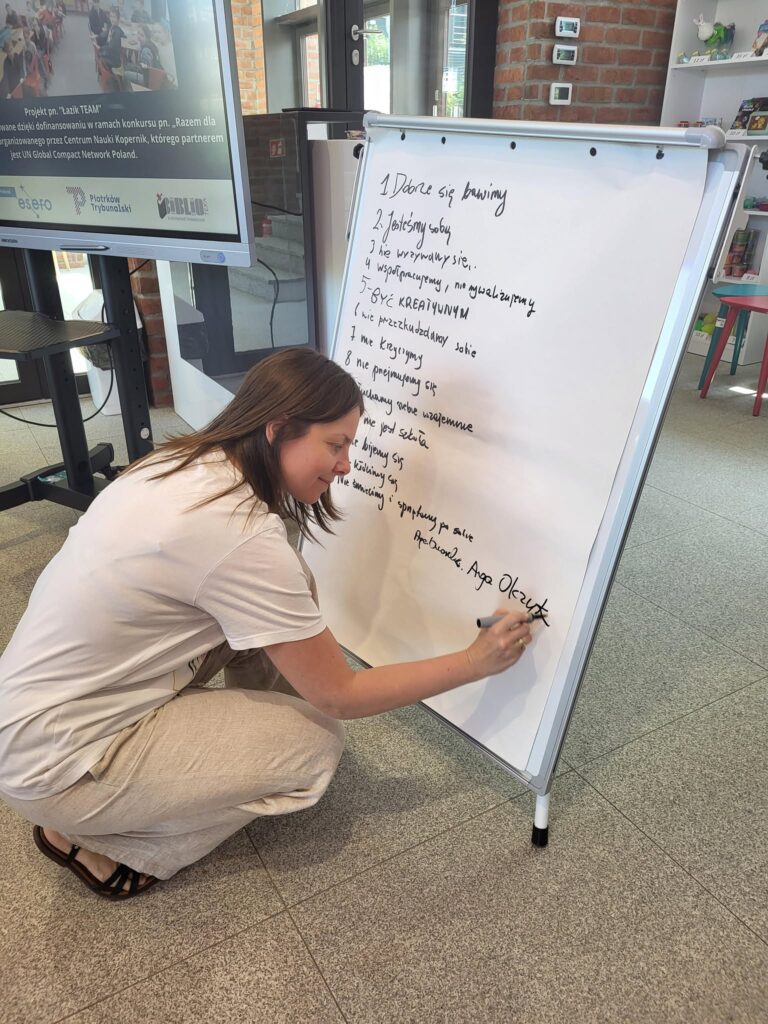 Projekt pn. "Łazik TEAM"
wane dzięki dofinansowaniu w ramach konkursu pn. „Razem dla
organizowanego przez Centrum Nauki Kopernik, którego partnerem
jest UN Global Compact Network Poland.
esero
Piotrków
Trybunalski
BIBLIO
1 Dobrze się bawimy
2. Jesteśmy sobą
3 nie wyzywamy się..
4 współpracujemy, nie rywalizujemy
5- BYĆ KREATYWNYM
nie przeszkadzamy sobie
7 nie krzyczymy
8 nie przejmujemy się
słuchamy siebie wzajemnie
nie jest szkoła
nie bijemy się
kłócimy się
Nie śmiecimy i sprzątamy po sobie
Aga Olczyk